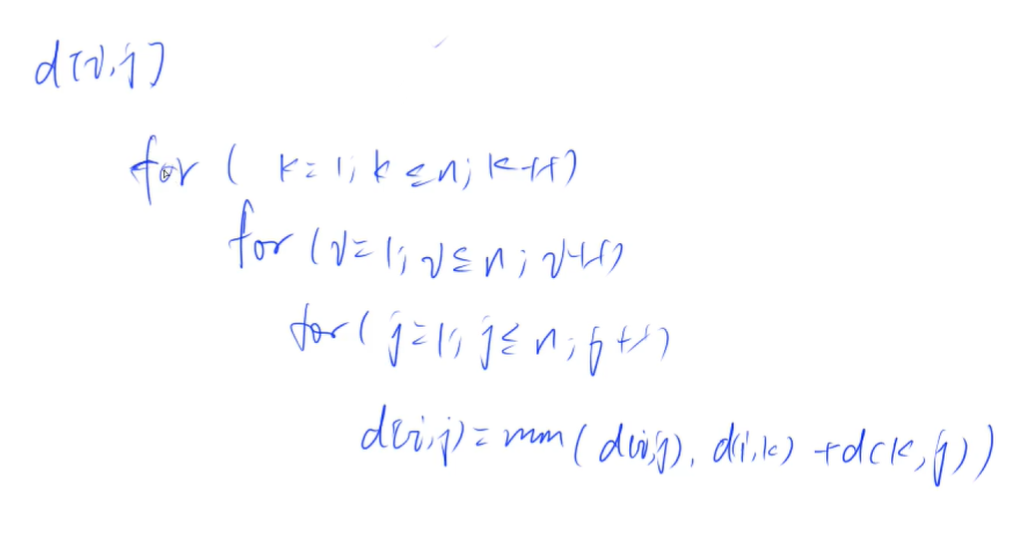 d[i,j]
for ( k=1; k≤n; k++)
for (i=1; i≤n; i++)
for ( j=1; j≤n; j++)
d[i,j)=min( d(i,j), d(i,k) +d(k,j))